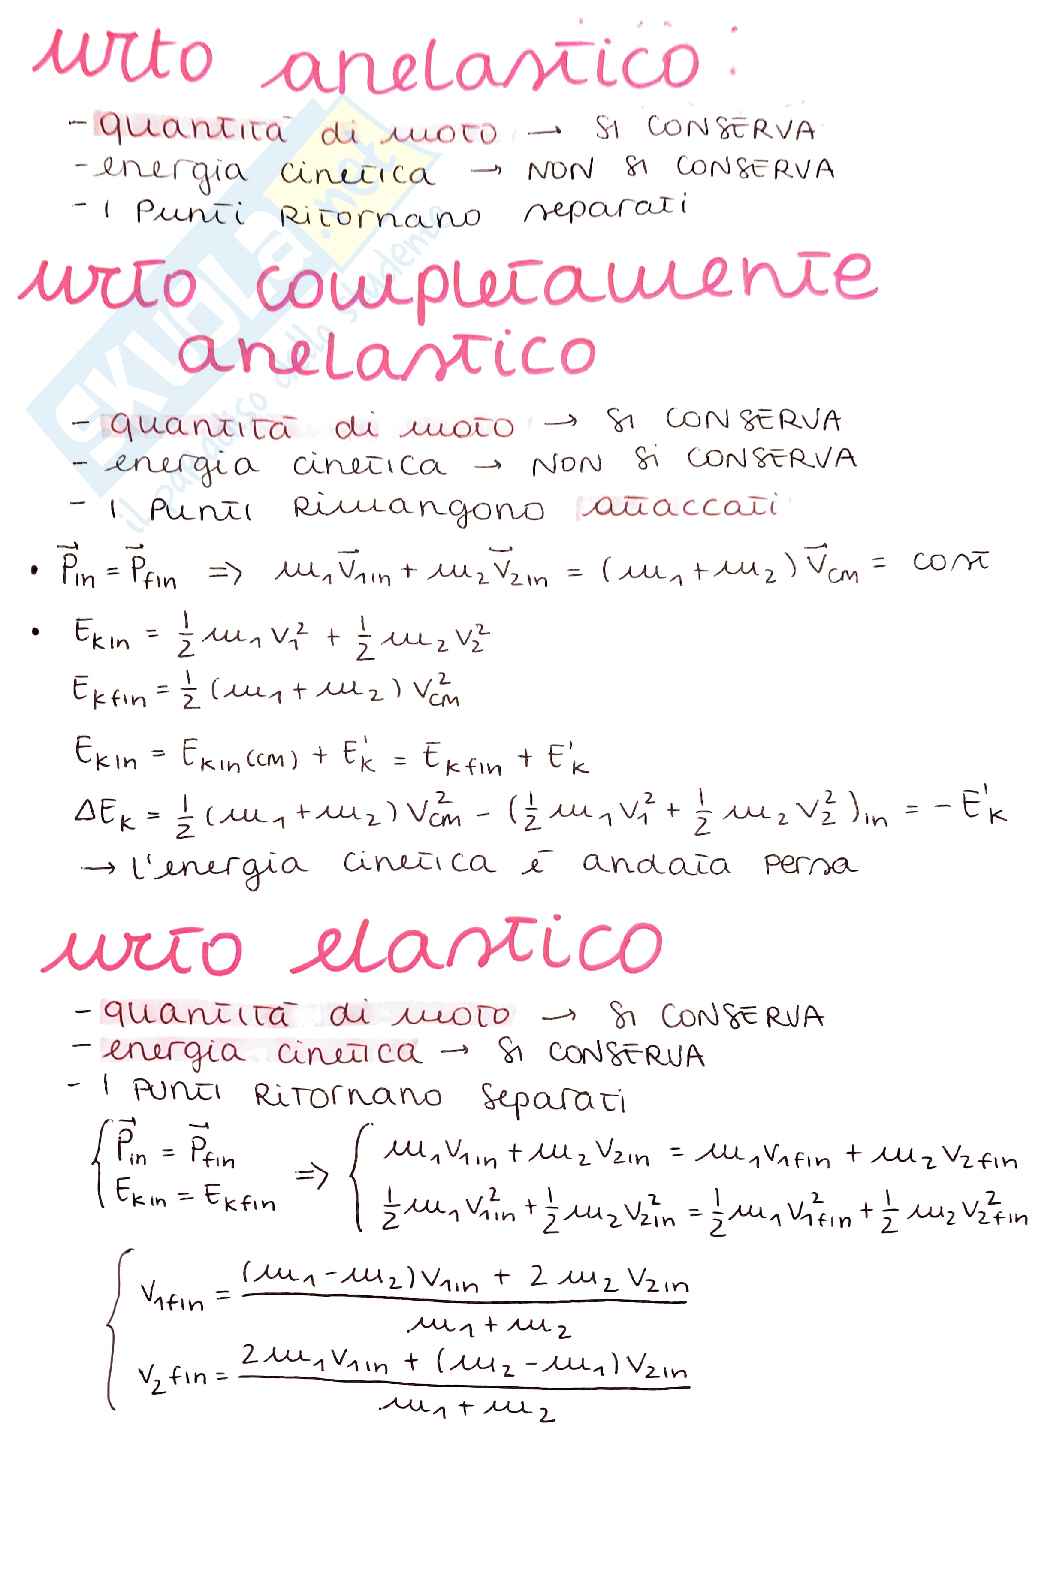 urto anelastico:
- quantità di moto → SI CONSERVA
- energia cinetica → NON SI CONSERVA
- I PUNTI RITORNANO separati
urto completamente
anelastico
- quantità di moto → SI CONSERVA
- energia cinetica → NON SI CONSERVA
- I PUNTI Rimangono attaccati
• P⃗in = P⃗fin => m₁v⃗₁in + m₂v⃗₂in = (m₁ + m₂) v⃗CM = cost
• Ekin = 1/2 m₁v₁² + 1/2 m₂v₂²
Ekfin = 1/2 (m₁ + m₂) vCM²
Ekin = Ekin(CM) + E'k = Ekfin + E'k
ΔEk = 1/2 (m₁ + m₂) vCM² - (1/2 m₁v₁² + 1/2 m₂v₂²)in = - E'k
→ l'energia cinetica è andata persa
urto elastico
- quantità di moto → SI CONSERVA
- energia cinetica → SI CONSERVA
- I PUNTI RITORNANO separati
{ P⃗in = P⃗fin => { m₁v₁in + m₂v₂in = m₁v₁fin + m₂v₂fin
Ekin = Ekfin 1/2 m₁v₁in² + 1/2 m₂v₂in² = 1/2 m₁v₁fin² + 1/2 m₂v₂fin²
{ v₁fin = ((m₁ - m₂)v₁in + 2 m₂ v₂in) / (m₁ + m₂)
v₂fin = (2m₁v₁in + (m₂ - m₁)v₂in) / (m₁ + m₂)
SKUOLA.net
il paradiso dello studente